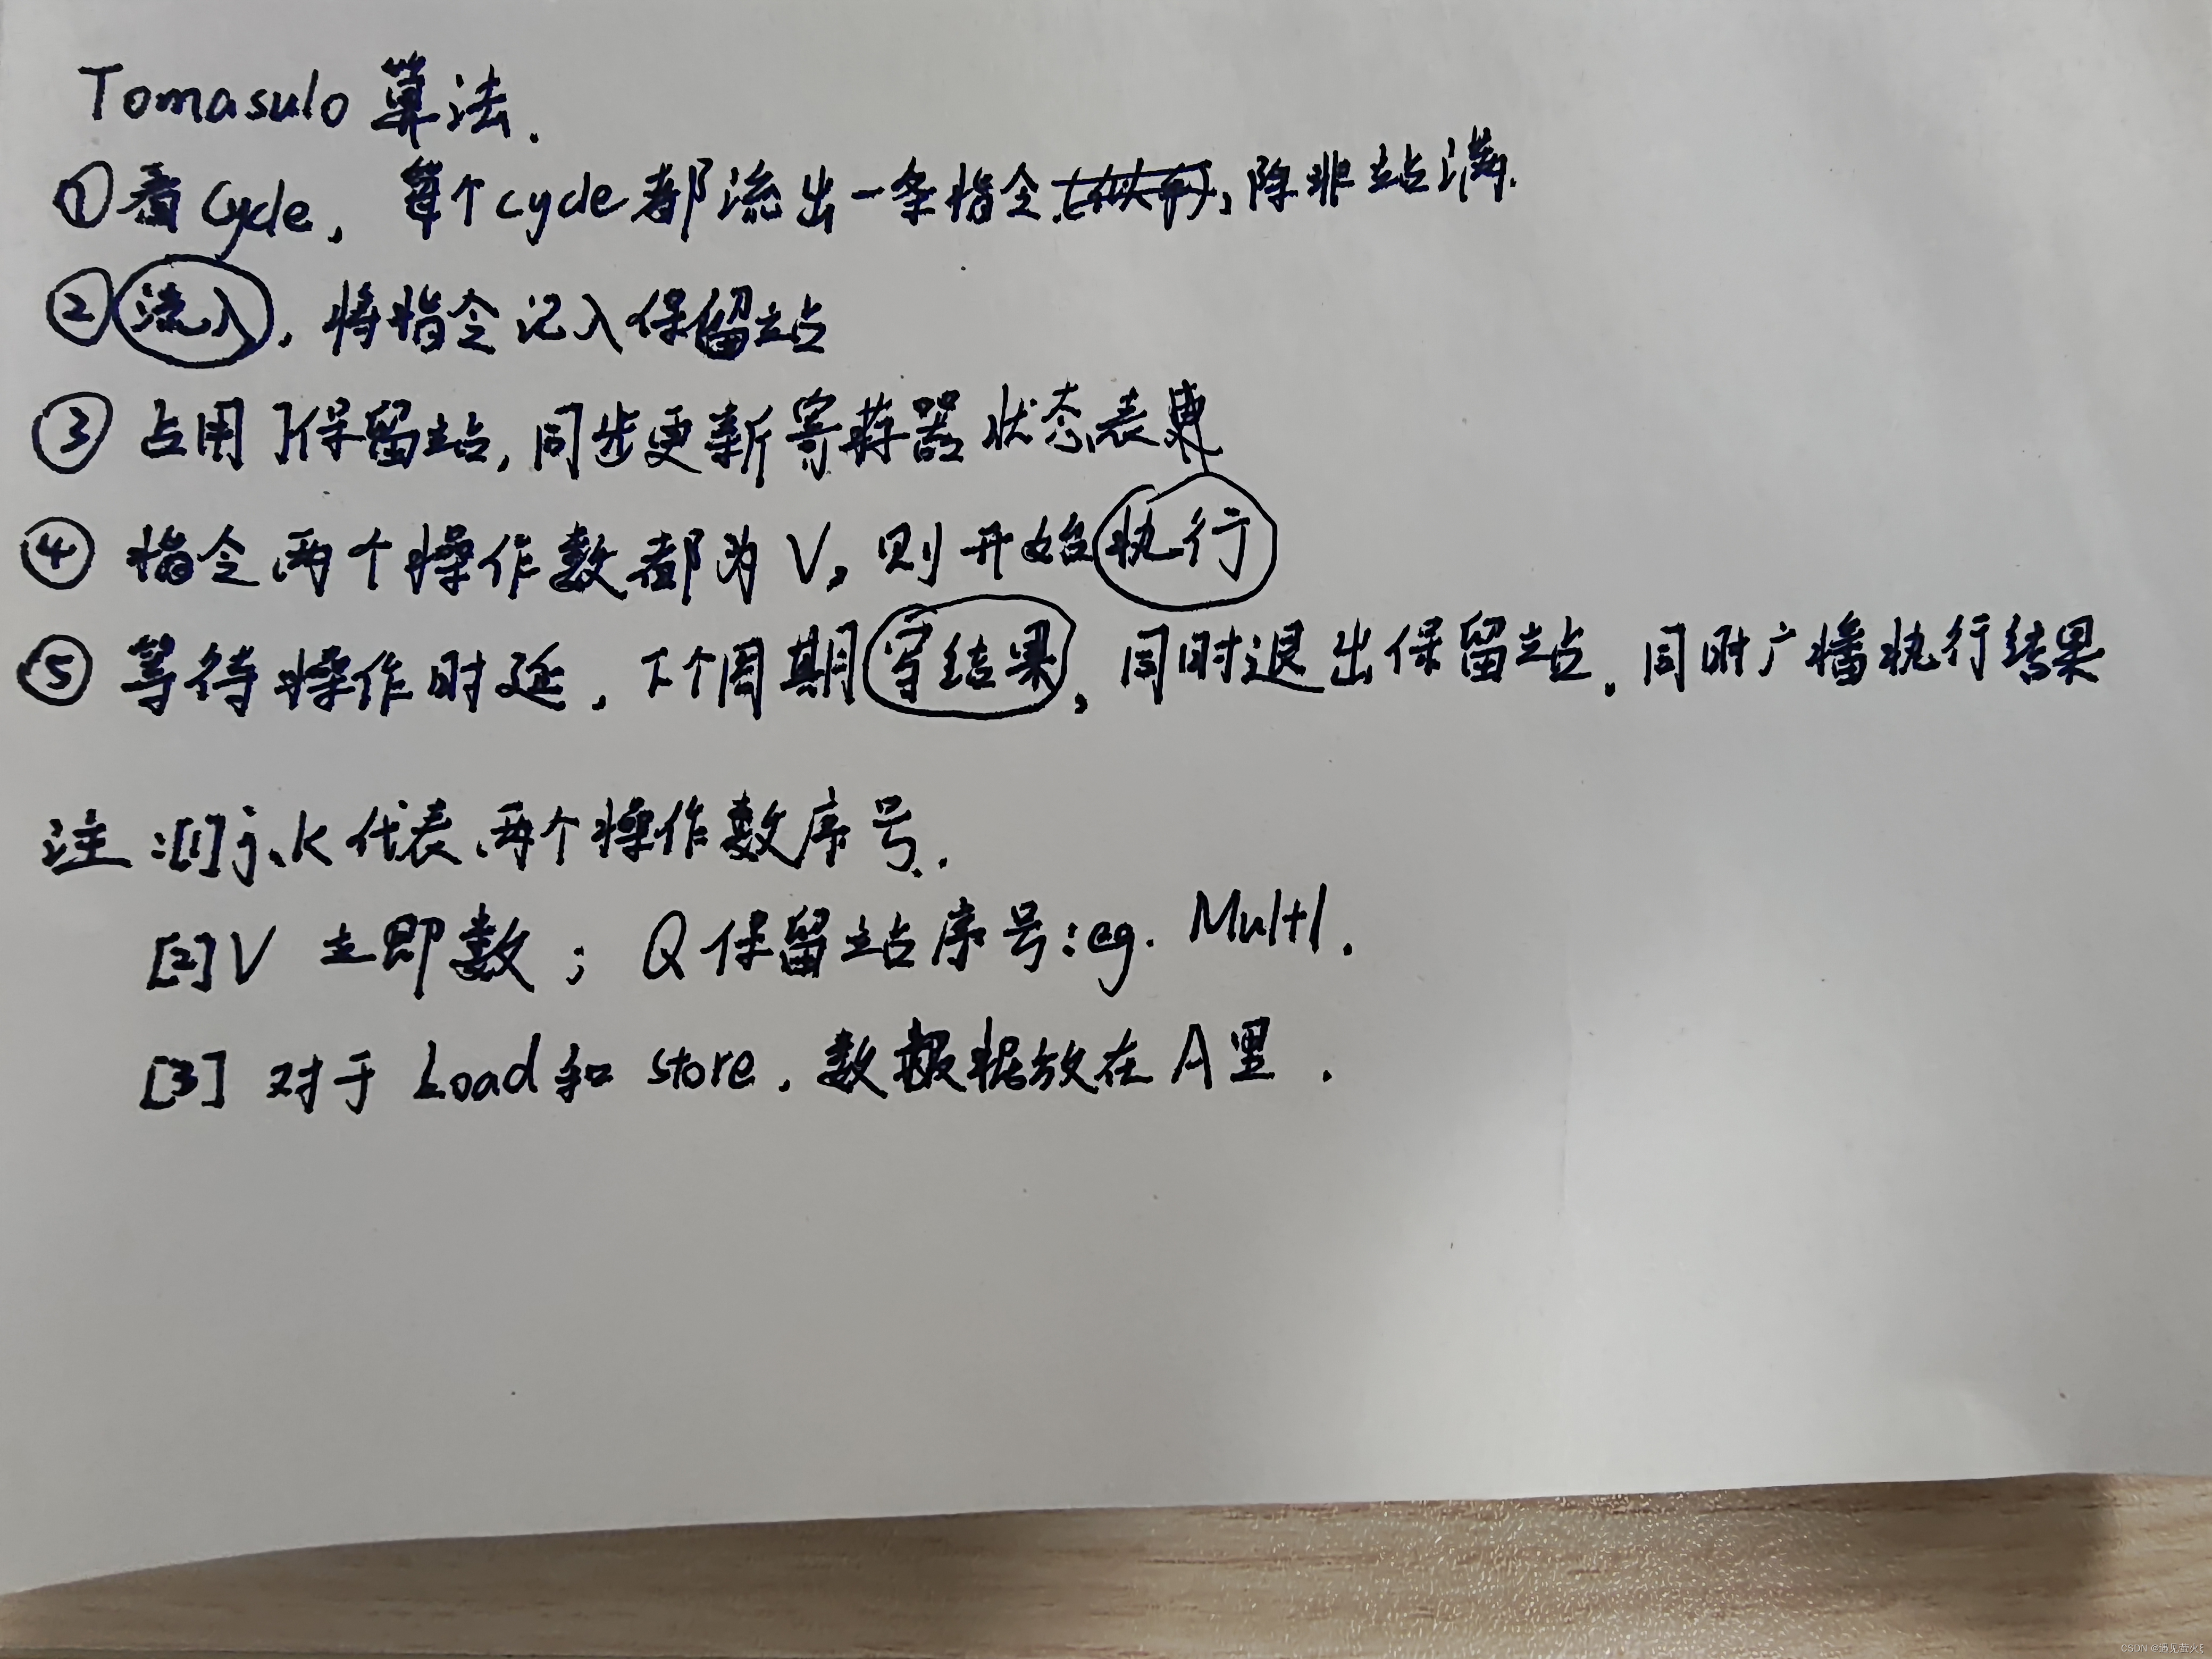 Tomasulo 算法.
①看Cycle, 每个cycle都流出一条指令, 除非站满.
②流入, 将指令记入保留站
③占用了保留站, 同步更新寄存器状态表
④指令两个操作数都为V, 则开始执行
⑤等待操作时延, 下个周期写结果, 同时退出保留站. 同时广播执行结果
注:[1]j、k代表两个操作数序号.
[2]V 立即数; Q保留站序号:eg. Mult1.
[3] 对于 Load和 store, 数据放在A里.
CSDN @遇见萤火